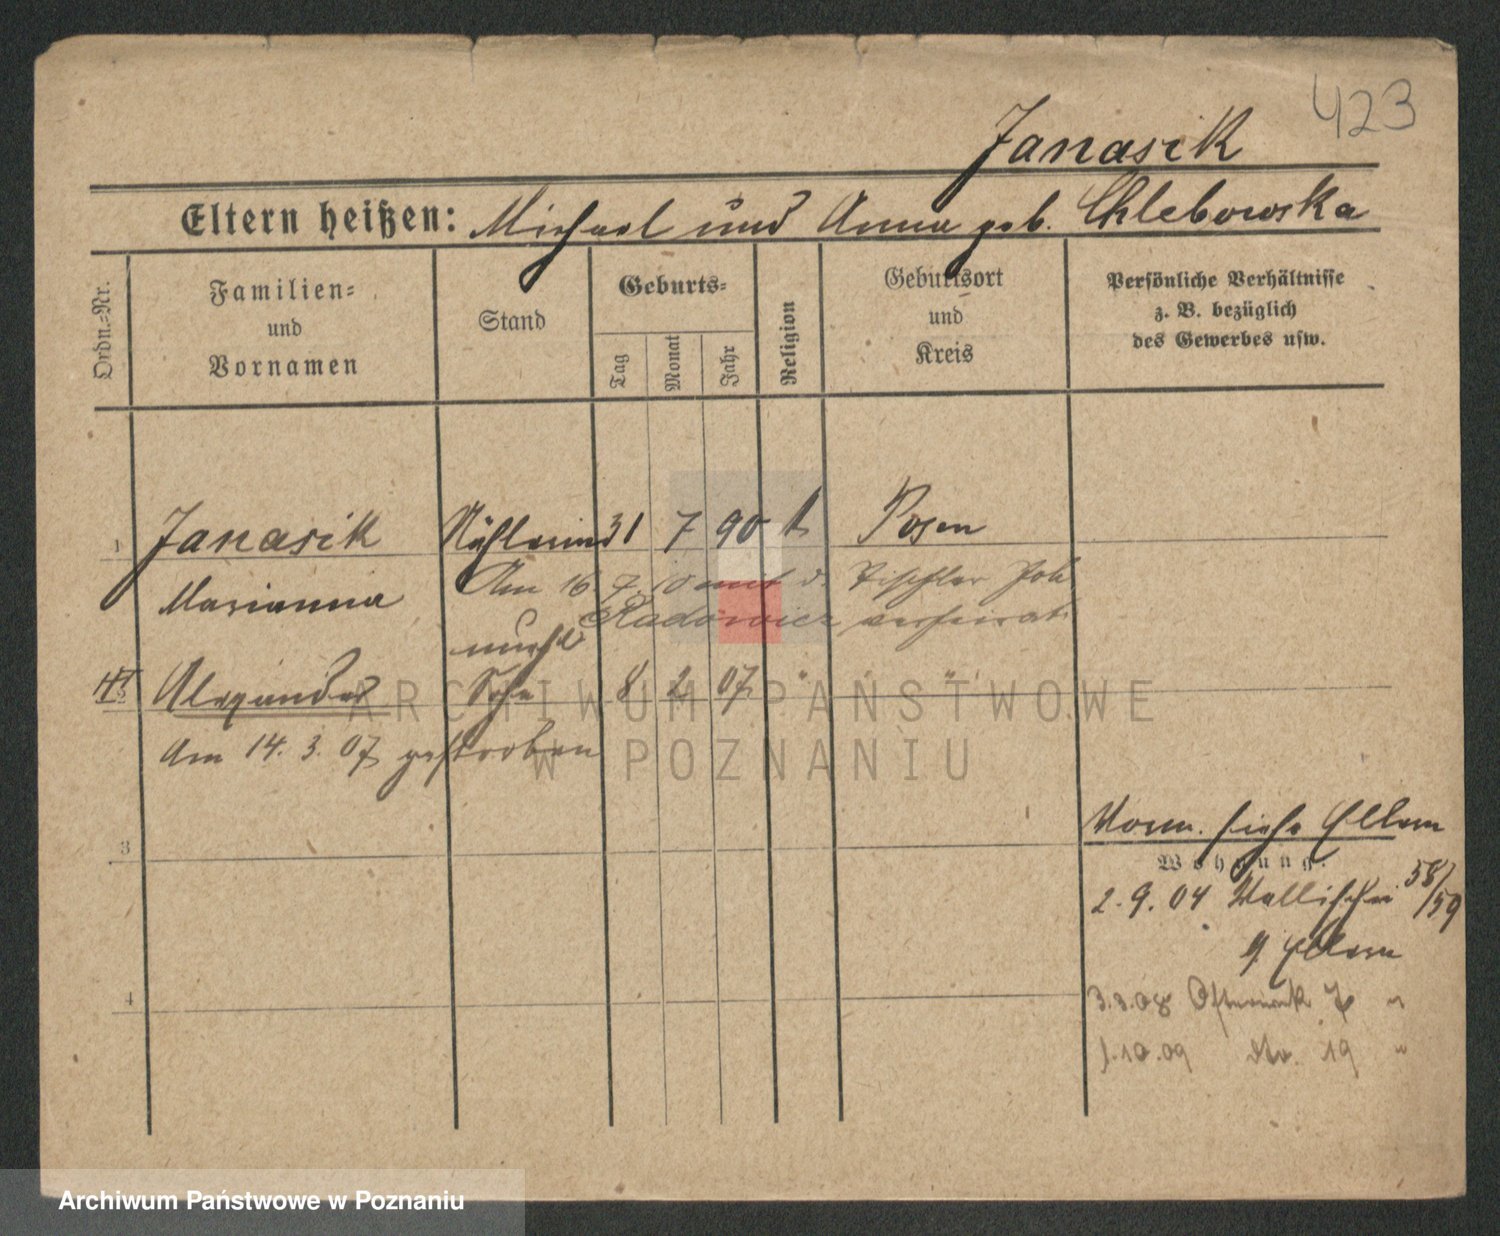 423
Janasik
Eltern heißen: Michael und Anna geb. Chlebowska
Ordn.-Nr.
Familien-
und
Vornamen
Stand
Geburts-
Tag
Monat
Jahr
Religion
Geburtsort
und
Kreis
Persönliche Verhältnisse
z. B. bezüglich
des Gewerbes usw.
1 Janasik Nähterin 31 7 90 k Posen
Marianna Am 16 7. 10 mit d. Tischler Joh
Radowicz verheirat.
unehl
II Alexander Sohn 8 2 07 " "
Am 14. 3. 07 gestorben
3
4
Vorm. siehe Eltern
Wohnung.
2. 9. 04 Wallischei 58/59
b. Eltern
3.3.08 Ostrowek 7 "
1.10.09 dto. 19 "
ARCHIWUM PAŃSTWOWE
W POZNANIU
Archiwum Państwowe w Poznaniu